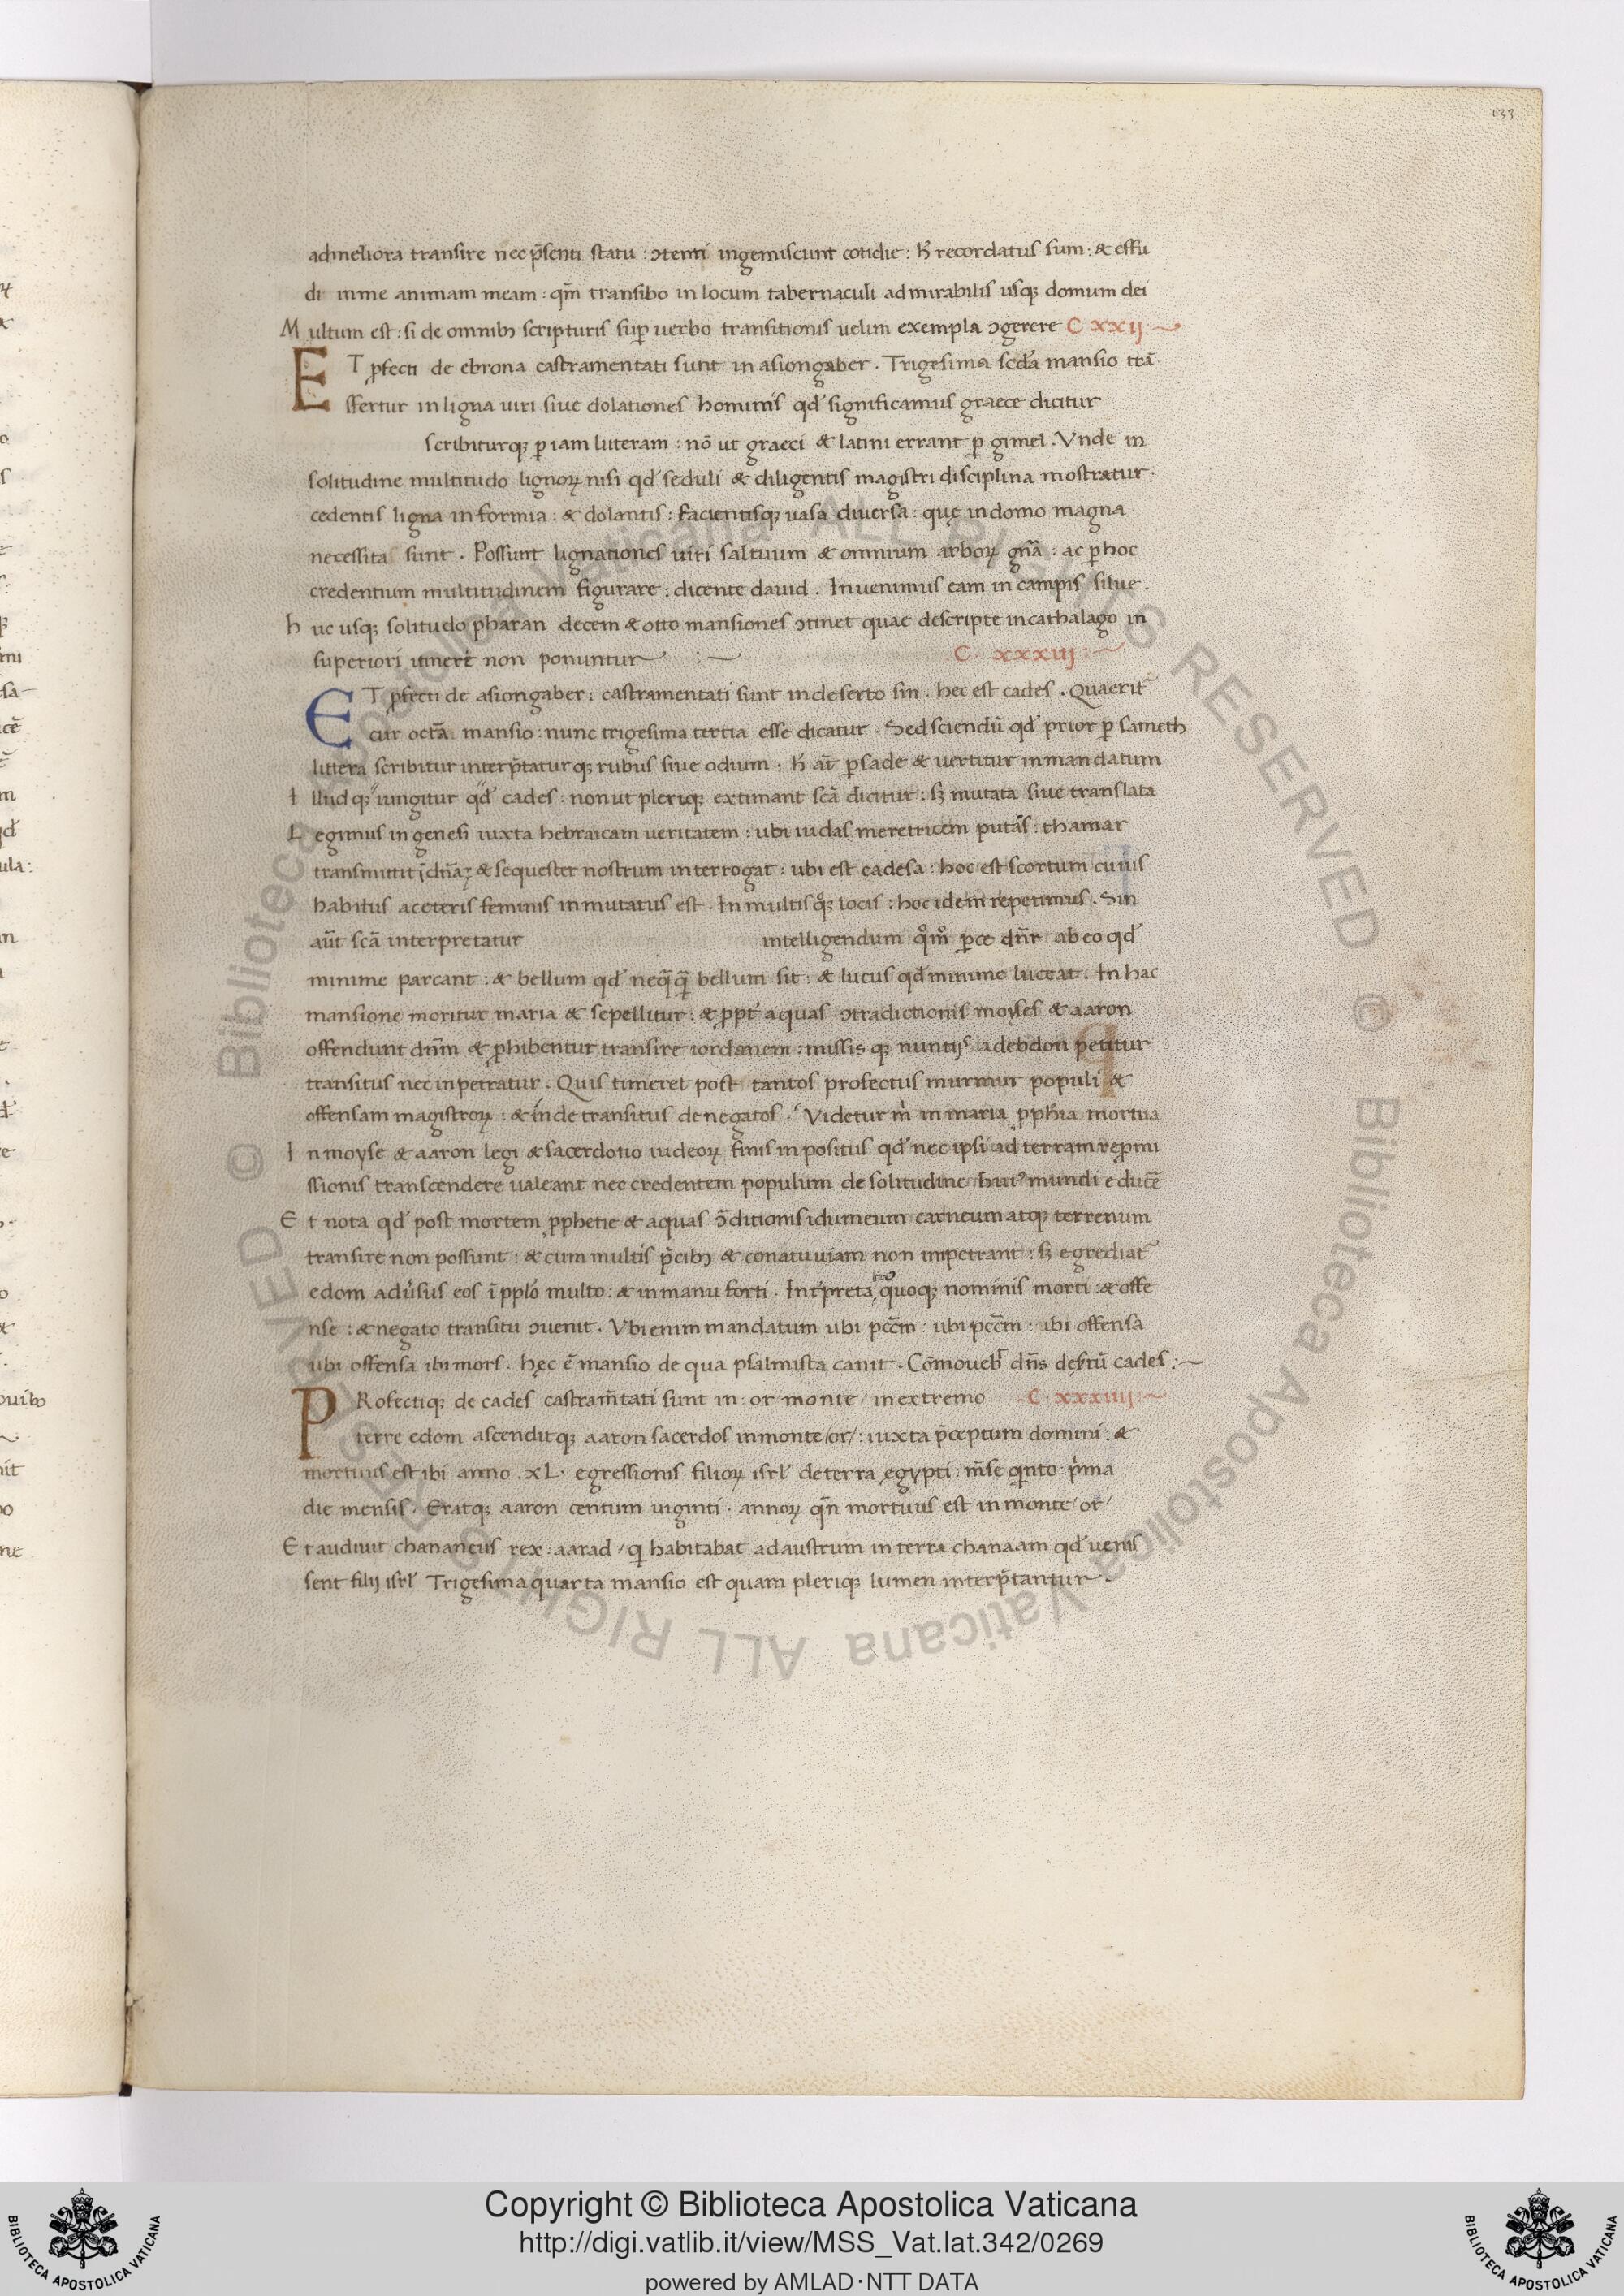 133
admeliora transire nec p̄senti statu : ↄtenti ingemiscunt cotidie : h̄ recordatus sum : & effu
di inme animam meam : qm̄ transibo in locum tabernaculi admirabilis usqꝫ domum dei
Multum est : si de omnibꝫ scripturis suꝑ uerbo transitionis uelim exempla ↄgerere C xxxij
ET ꝓfecti de ebrona castramentati sunt in asiongaber . Trigesima scd̄a mansio trā
sfertur inligna uiri siue dolationes hominis qd̄ significamus graece dicitur
scribiturqꝫ ꝑ iam litteram : nō ut graeci & latini errant ꝑ gimel . Vnde in
solitudine multitudo lignoꝝ nisi qd̄ seduli & diligentis magistri disciplina mostratur .
cedentis ligna informia : & dolantis : facientisqꝫ uasa diuersa : quę indomo magna
necessita sunt . Possunt lignationes uiri saltuum & omnium arboꝝ gn̄a : ac ꝑ hoc
credentium multitudinem figurare : dicente dauid . Inuenimus eam in campis silue .
huc usqꝫ solitudo pharan decem & otto mansiones ↄtinet quae descripte incathalago in
superiori itinere non ponuntur : C . xxxiij :
ET ꝓfecti de asiongaber : castramentati sunt indeserto sin . hec est cades . Quaerit̄
cur octā mansio : nunc trigesima tertia esse dicatur . Sed sciendū qd̄ prior ꝑ sameth
littera scribitur interp̄tatur qꝫ rubus siue odium . h̄ aūt ꝑ sade & uertitur inmandatum
Illud qꝫ iungitur qd̄ cades : non ut plerique extimant scā dicitur : sꝫ mutata siue translata
Legimus in genesi iuxta hebraicam ueritatem : ubi iudas meretricem putās : thamar
transmittit & sequester nostrum interrogat : ubi est cadesa : hoc est scortum cuius
habitus aceteris feminis inmutatus est . In multis qꝫ locis : hoc idem repetimus . Sin
aūt scā interpretatur intelligendum qm̊ ꝑce dn̄r ab eo qd̄
minime parcant : & bellum qd̄ neq̄q̄ bellum sit : & lucus qd̄ minime luceat . In hac
mansione moritur maria & sepellitur : & ꝓpt̄ aquas ↄtradictionis moyses & aaron
offendunt dn̄m & ꝓhibentur transire iordanem : missis qꝫ nuntijs adebdon petitur
transitus nec inpetratur . Quis timeret post tantos profectus murmur populi &
offensam magistroꝝ : & inde transitus denegatos . Videtur m̄ inmaria ꝓph̄ia mortua
In moyse & aaron legi & sacerdotio iudeoꝝ finis inpositus qd̄ nec ipsi ad terram reꝓmi
ssionis transcendere ualeant nec credentem populum de solitudine hui' mundi educē
Et nota qd̄ post mortem ꝓphetie & aquas ↄ̄ditionis idumeum carneum atqꝫ terrenum
transire non possunt : & cum multis p̄cibꝫ & conatu uiam non impetrant : sꝫ egrediat̄
edom adūsus eos ī ppl̄o multo : & inmanu forti . Int̄preta tio quoqꝫ nominis morti : & offe
nse : & negato transitu ↄuenit . Vbi enim mandatum ubi pcc̄m : ubi pcc̄m : ibi offensa
ubi offensa ibi mors . hęc ē mansio de qua psalmista canit . Cōmoueb̄ dn̄s desertū cades :
PRofectiqꝫ de cades castram̄tati sunt in : or monte / inextremo C . xxxiiij :
terre edom ascenditqꝫ aaron sacerdos inmonte / or / : iuxta p̄ceptum domini : &
mortuus est ibi anno . XL . egressionis filioꝝ isrl̄ deterra ęgypti : m̄se qinto : pima
die mensis . Eratqꝫ aaron centum uiginti . annoꝝ qn̄ mortuus est inmonte / or /
Et audiuit chananeus rex : aarad / qi habitabat adaustrum interra chanaam qd̄ uenis
sent filij isrl̄ Trigesima quarta mansio est quam plerique lumen interp̄tantur .
© Biblioteca Apostolica Vaticana ALL RIGHTS RESERVED © Biblioteca Apostolica Vaticana ALL RIGHTS RESERVED
Copyright © Biblioteca Apostolica Vaticana
http://digi.vatlib.it/view/MSS_Vat.lat.342/0269
powered by AMLAD·NTT DATA
BIBLIOTECA APOSTOLICA VATICANA
BIBLIOTECA APOSTOLICA VATICANA